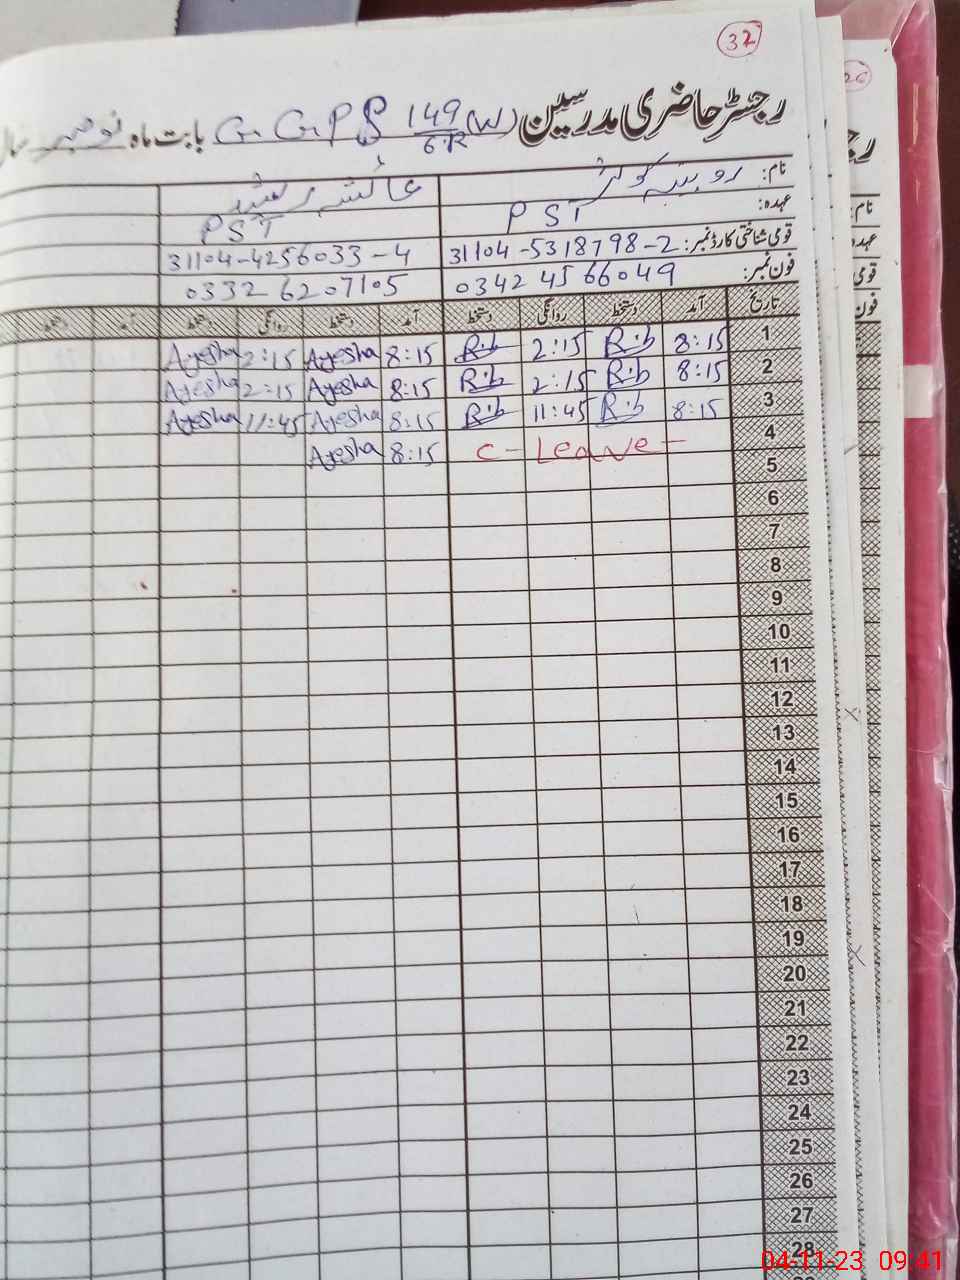 32
رجسٹر حاضری مدرسین G.G.P.S 149/6.R (W) بابت ماہ نومبر
نام: روبینہ کوثر عائشہ رشید
عہدہ: PST PST
قومی شناختی کارڈ نمبر: 31104-5318798-2 31104-4256033-4
فون نمبر: 0342 45 66049 0332 6207105
تاریخ آمد دستخط روانگی دستخط آمد دستخط روانگی دستخط آمد دستخط
1 8:15 Rib 2:15 Rib 8:15 Ayesha 2:15 Ayesha
2 8:15 Rib 2:15 Rib 8:15 Ayesha 2:15 Ayesha
3 8:15 Rib 11:45 Rib 8:15 Ayesha 11:45 Ayesha
4 C - Leave - 8:15 Ayesha
5
6
7
8
9
10
11
12
13
14
15
16
17
18
19
20
21
22
23
24
25
26
27
28
26
نام:
عہدہ
قومی
فون
04-11-23 09:41